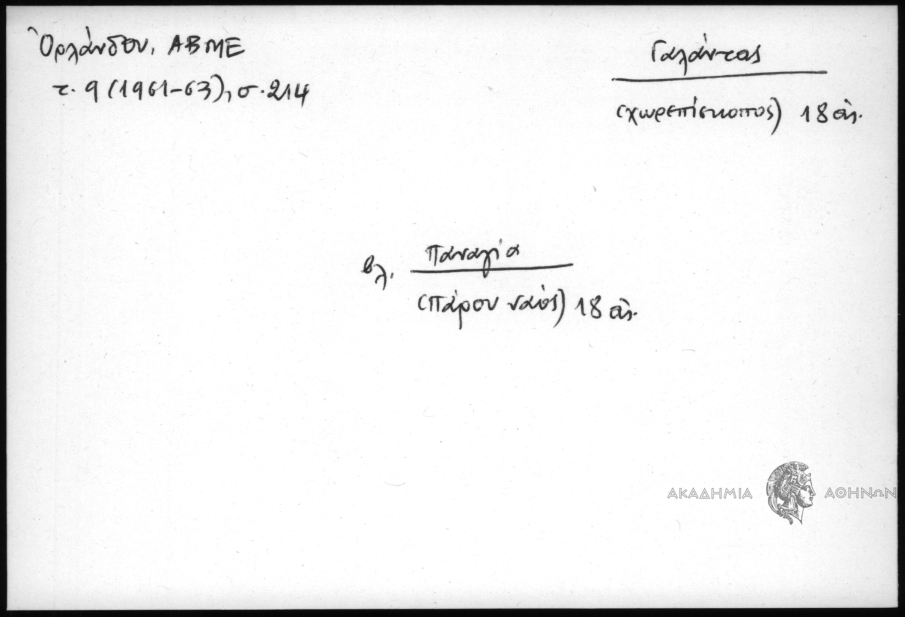 Ὀρλάνδου, ΑΒΜΕ
τ. 9 (1961-63), σ. 214
Γαλάντας
(χωρεπίσκοπος) 18 αἰ.
βλ. Παναγία
(Πάρου ναός) 18 αἰ.
ΑΚΑΔΗΜΙΑ ΑΘΗΝΩΝ